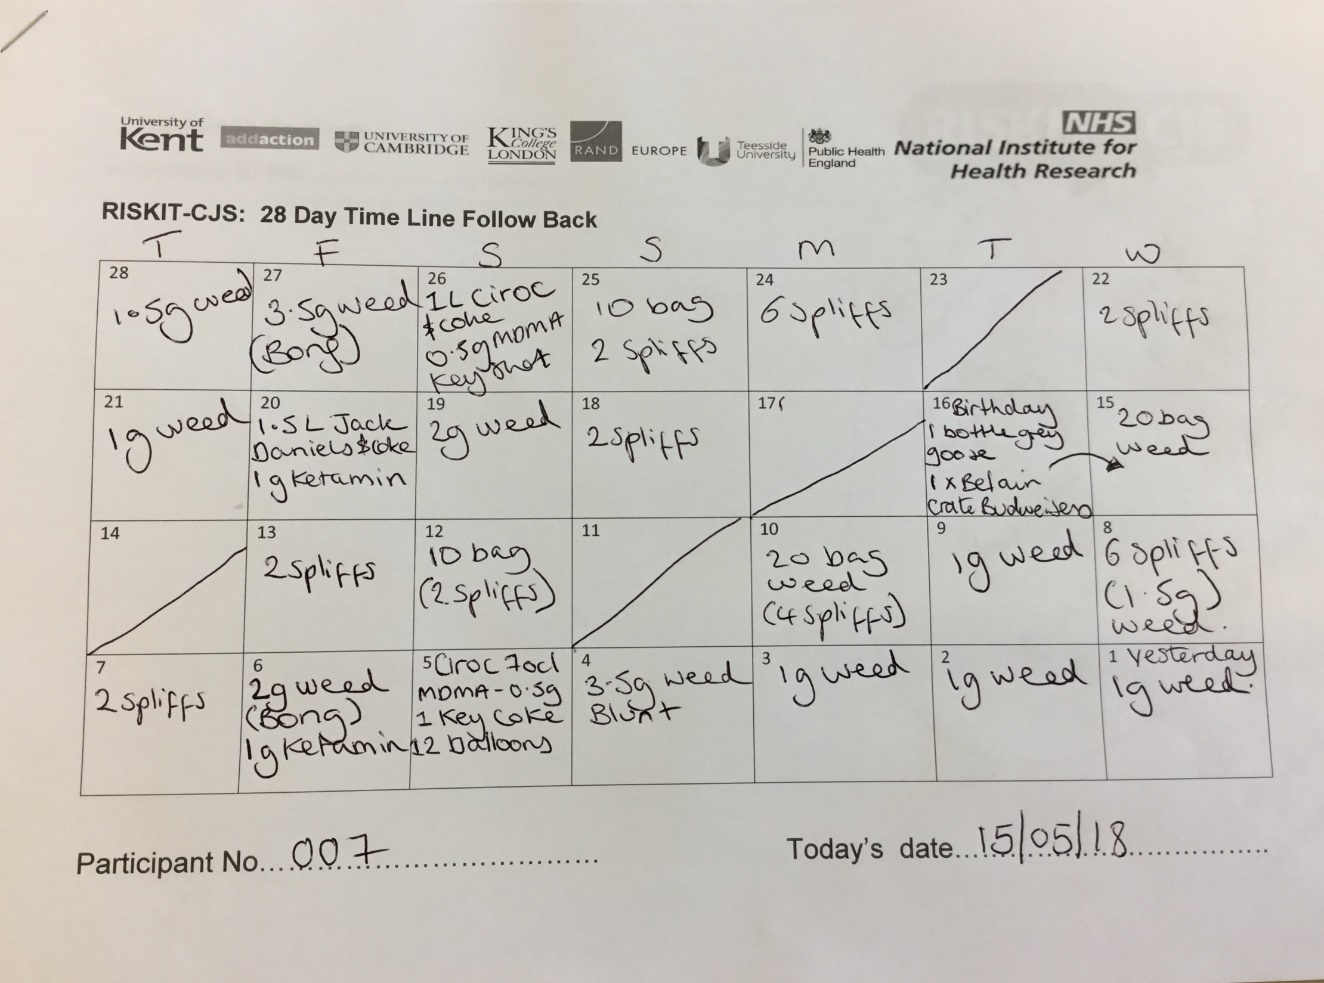 University of
Kent
addaction
UNIVERSITY OF
CAMBRIDGE
KING'S
College
LONDON
RAND EUROPE
Teesside
University
Public Health
England
NHS
National Institute for
Health Research
RISKIT-CJS: 28 Day Time Line Follow Back
T F S S M T W
28
1.5g weed
27
3.5g weed
(Bong)
26
1L Ciroc
& coke
0.5g MDMA
Key shot
25
10 bag
2 Spliffs
24
6 Spliffs
23
22
2 Spliffs
21
1g weed
20
1.5 L Jack
Daniels & Coke
1g Ketamin
19
2g weed
18
2 Spliffs
17
16 Birthday
1 bottle grey
goose
1 x Belair
Crate Budweisers
15
20 bag
weed
14
13
2 Spliffs
12
10 bag
(2 Spliffs)
11
10
20 bag
weed
(4 Spliffs)
9
1g weed
8
6 Spliffs
(1.5g)
weed.
7
2 Spliffs
6
2g weed
(Bong)
1g Ketamin
5 Ciroc 70cl
MDMA - 0.5g
1 Key Coke
12 balloons
4
3.5g weed
Blunt
3
1g weed
2
1g weed
1 Yesterday
1g weed.
Participant No... 007
Today's date... 15/05/18